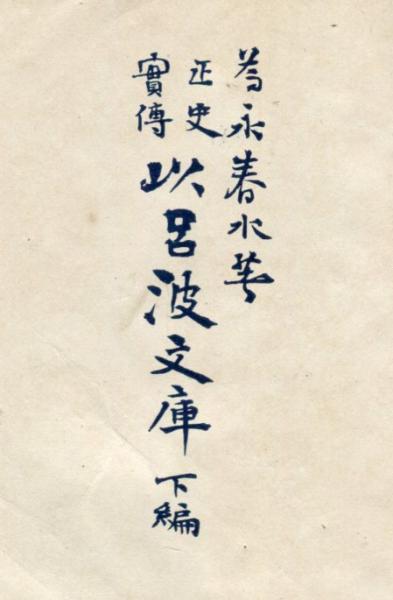 為永春水著
正史
實傳
以呂波文庫 下編